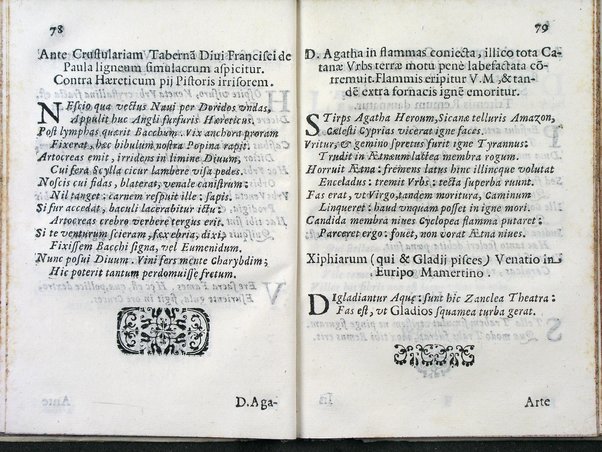 78
Ante Crustulariam Tabernã Diui Francisci de
Paula ligneum simulacrum aspicitur.
Contra Hæreticum pij Pistoris irrisorem.
NEscio qua vectus Naui per Doridos vndas,
Appulit huc Angli furfuris Hæreticus,
Post lymphas quærit Bacchum. Vix anchora proram
Fixerat, hæc bibulum nostra Popina rapit.
Artocreas emit, irridens in limine Diuum,
Cui fera Scylla cicur lambere visa pedes.
Noscis cui fidas, blaterat, venale canistrum:
Nil tanget: carnem respuit ille: sapis.
Si fur accedat, baculi lacerabitur ictu:
Artocreas crebro verbere tergus erit.
Si te venturum scieram, fex ebria, dixi;
Fixissem Bacchi signa, vel Eumenidum.
Nunc posui Diuum. Vini fers mente Charybdim;
Hic poterit tantum perdomuisse fretum.
D.Aga-
79
D. Agatha in flammas coniecta, illico tota Ca-
tanæ Vrbs terræ motu penè labefactata cõ-
tremuit. Flammis eripitur V.M, & tan-
dẽ extra fornacis ignẽ emoritur.
STirps Agatha Heroum, Sicanæ telluris Amazon,
Cælesti Cyprias vicerat igne faces.
Vritur, & gemino spretus furit igne Tyrannus:
Trudit in Ætneum lactea membra rogum.
Horruit Ætna: fremens latus hinc illincque volutat
Enceladus: tremit Vrbs: tecta superba ruunt.
Fas erat, vt Virgo, tandem moritura, Caminum
Linqueret: haud vnquam posset in igne mori.
Candida membra niues Cyclopea flamma putaret:
Parceret ergo: fouet, non vorat Ætna niues.
Xiphiarum (qui & Gladij pisces) Venatio in
Euripo Mamertino.
DIgladiantur Aquę: sunt hic Zanclea Theatra:
Fas est, vt Gladios squamea turba gerat.
Arte